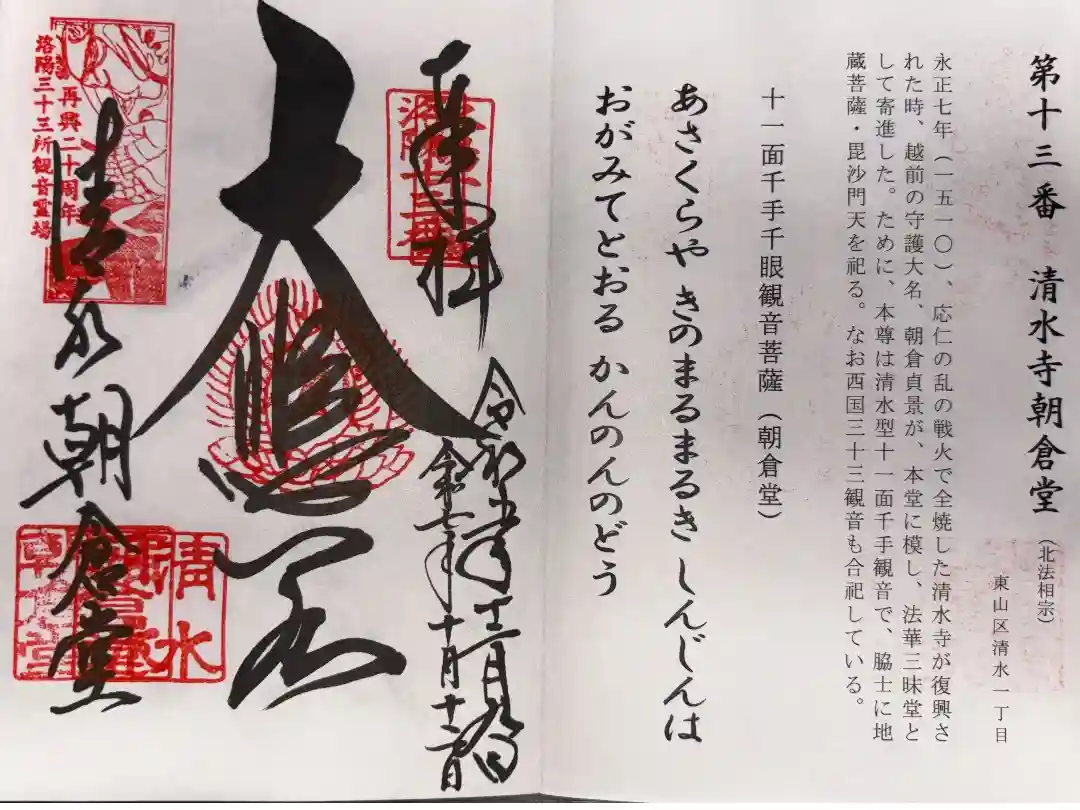 第十三番　清水寺朝倉堂（北法相宗）
東山区清水一丁目
永正七年（一五一〇）、応仁の乱の戦火で全焼した清水寺が復興さ
れた時、越前の守護大名、朝倉貞景が、本堂に模し、法華三昧堂と
して寄進した。ために、本尊は清水型十一面千手観音で、脇士に地
蔵菩薩・毘沙門天を祀る。なお西国三十三観音も合祀している。
十一面千手千眼観音菩薩（朝倉堂）
あさくらや きのまるまるき しんじんは
おがみてとおる かんのんのどう
奉拝
令和
令和七年十月十二日
大悲閣
清水朝倉堂
再興二十周年
洛陽三十三所観音霊場
清水